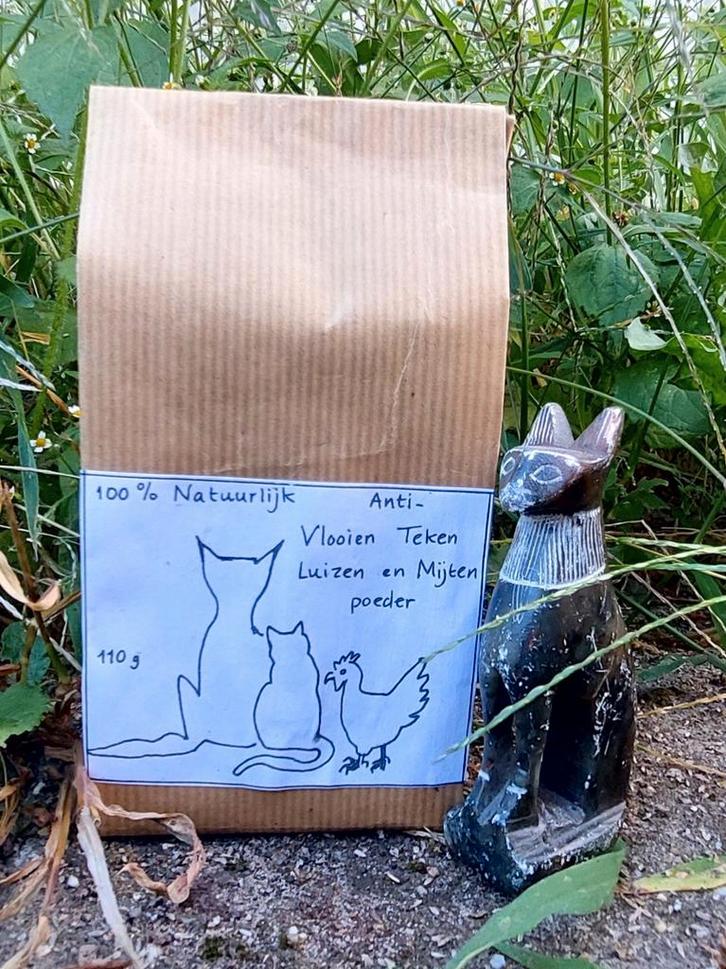 100 % Natuurlijk
Anti-
Vlooien Teken
Luizen en Mijten
poeder
110 g